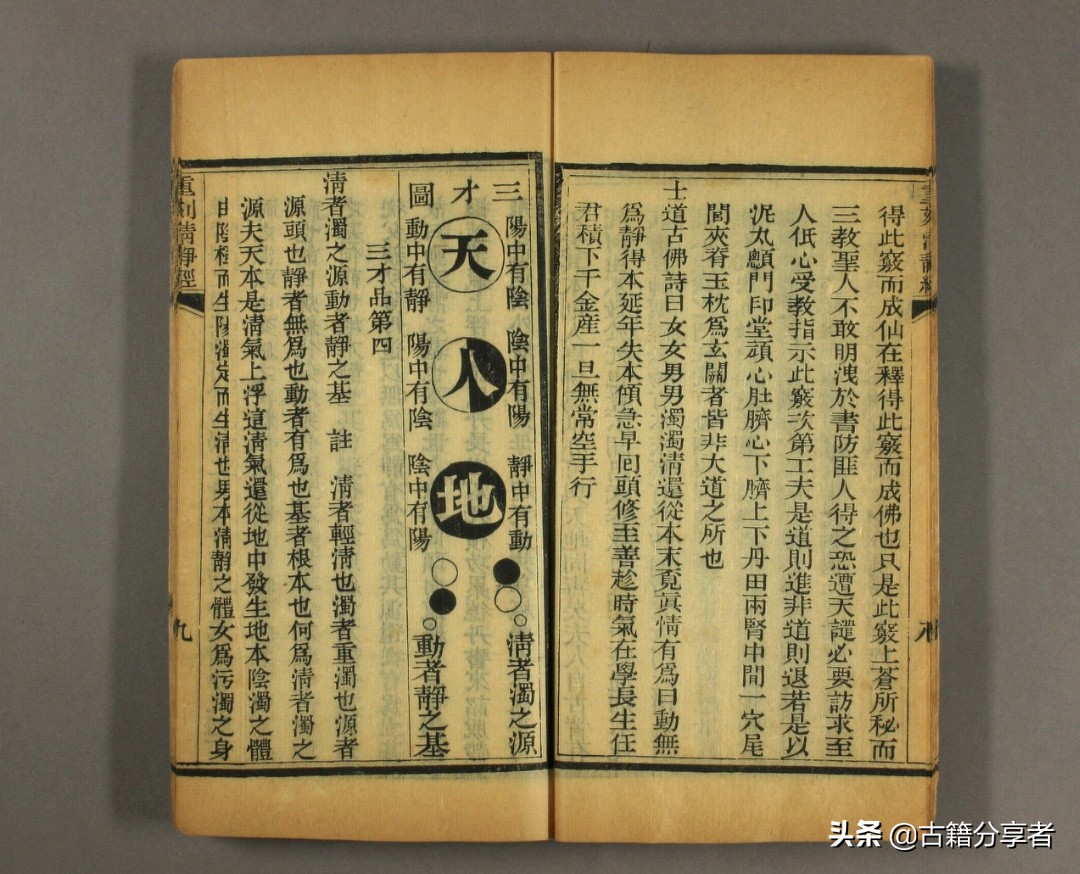 得此竅而成仙在釋得此竅而成佛也只是此竅上蒼所秘而
三教聖人不敢明洩於書防匪人得之恐遭天譴必要訪求至
人低心受教指示此竅次第工夫是道則進非道則退若是以
泥丸顖門印堂頑心肚臍心下臍上下丹田兩腎中間一穴尾
閭夾脊玉枕為玄關者皆非大道之所也
士道古佛詩曰女女男男濁濁清還從本末覓真情有為曰動無
為靜得本延年失本傾急早回頭修至善趁時氣在學長生任
君積下千金產一旦無常空手行
八
三才圖
陽中有陰 陰中有陽 靜中有動
天 人 地
動中有靜 陽中有陰 陰中有陽
清者濁之源
動者靜之基
三才品第四
清者濁之源動者靜之基 註 清者輕清也濁者重濁也源者
源頭也靜者無為也動者有為也基者根本也何為清者濁之
源夫天本是清氣上浮這清氣還從地中發生地本陰濁之體
由陰極而生陽濁定而生清也男本清靜之體女為污濁之身
重刻清靜經
九
头条 @古籍分享者